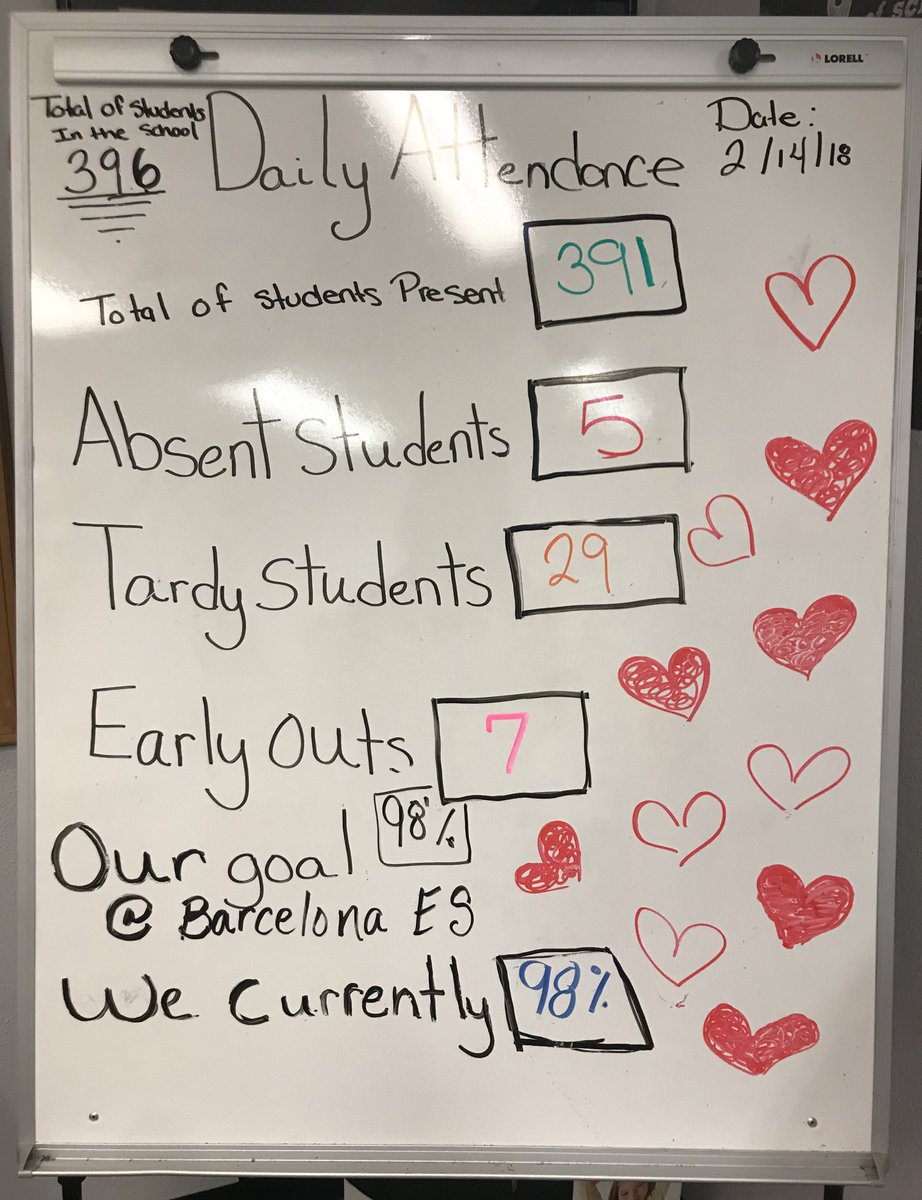 LORELL
Total of Students
In the School
396
Daily Attendance
Date:
2/14/18
Total of students Present 391
Absent Students 5
Tardy Students 29
Early Outs 7
Our goal 98%
@ Barcelona ES
We Currently 98%